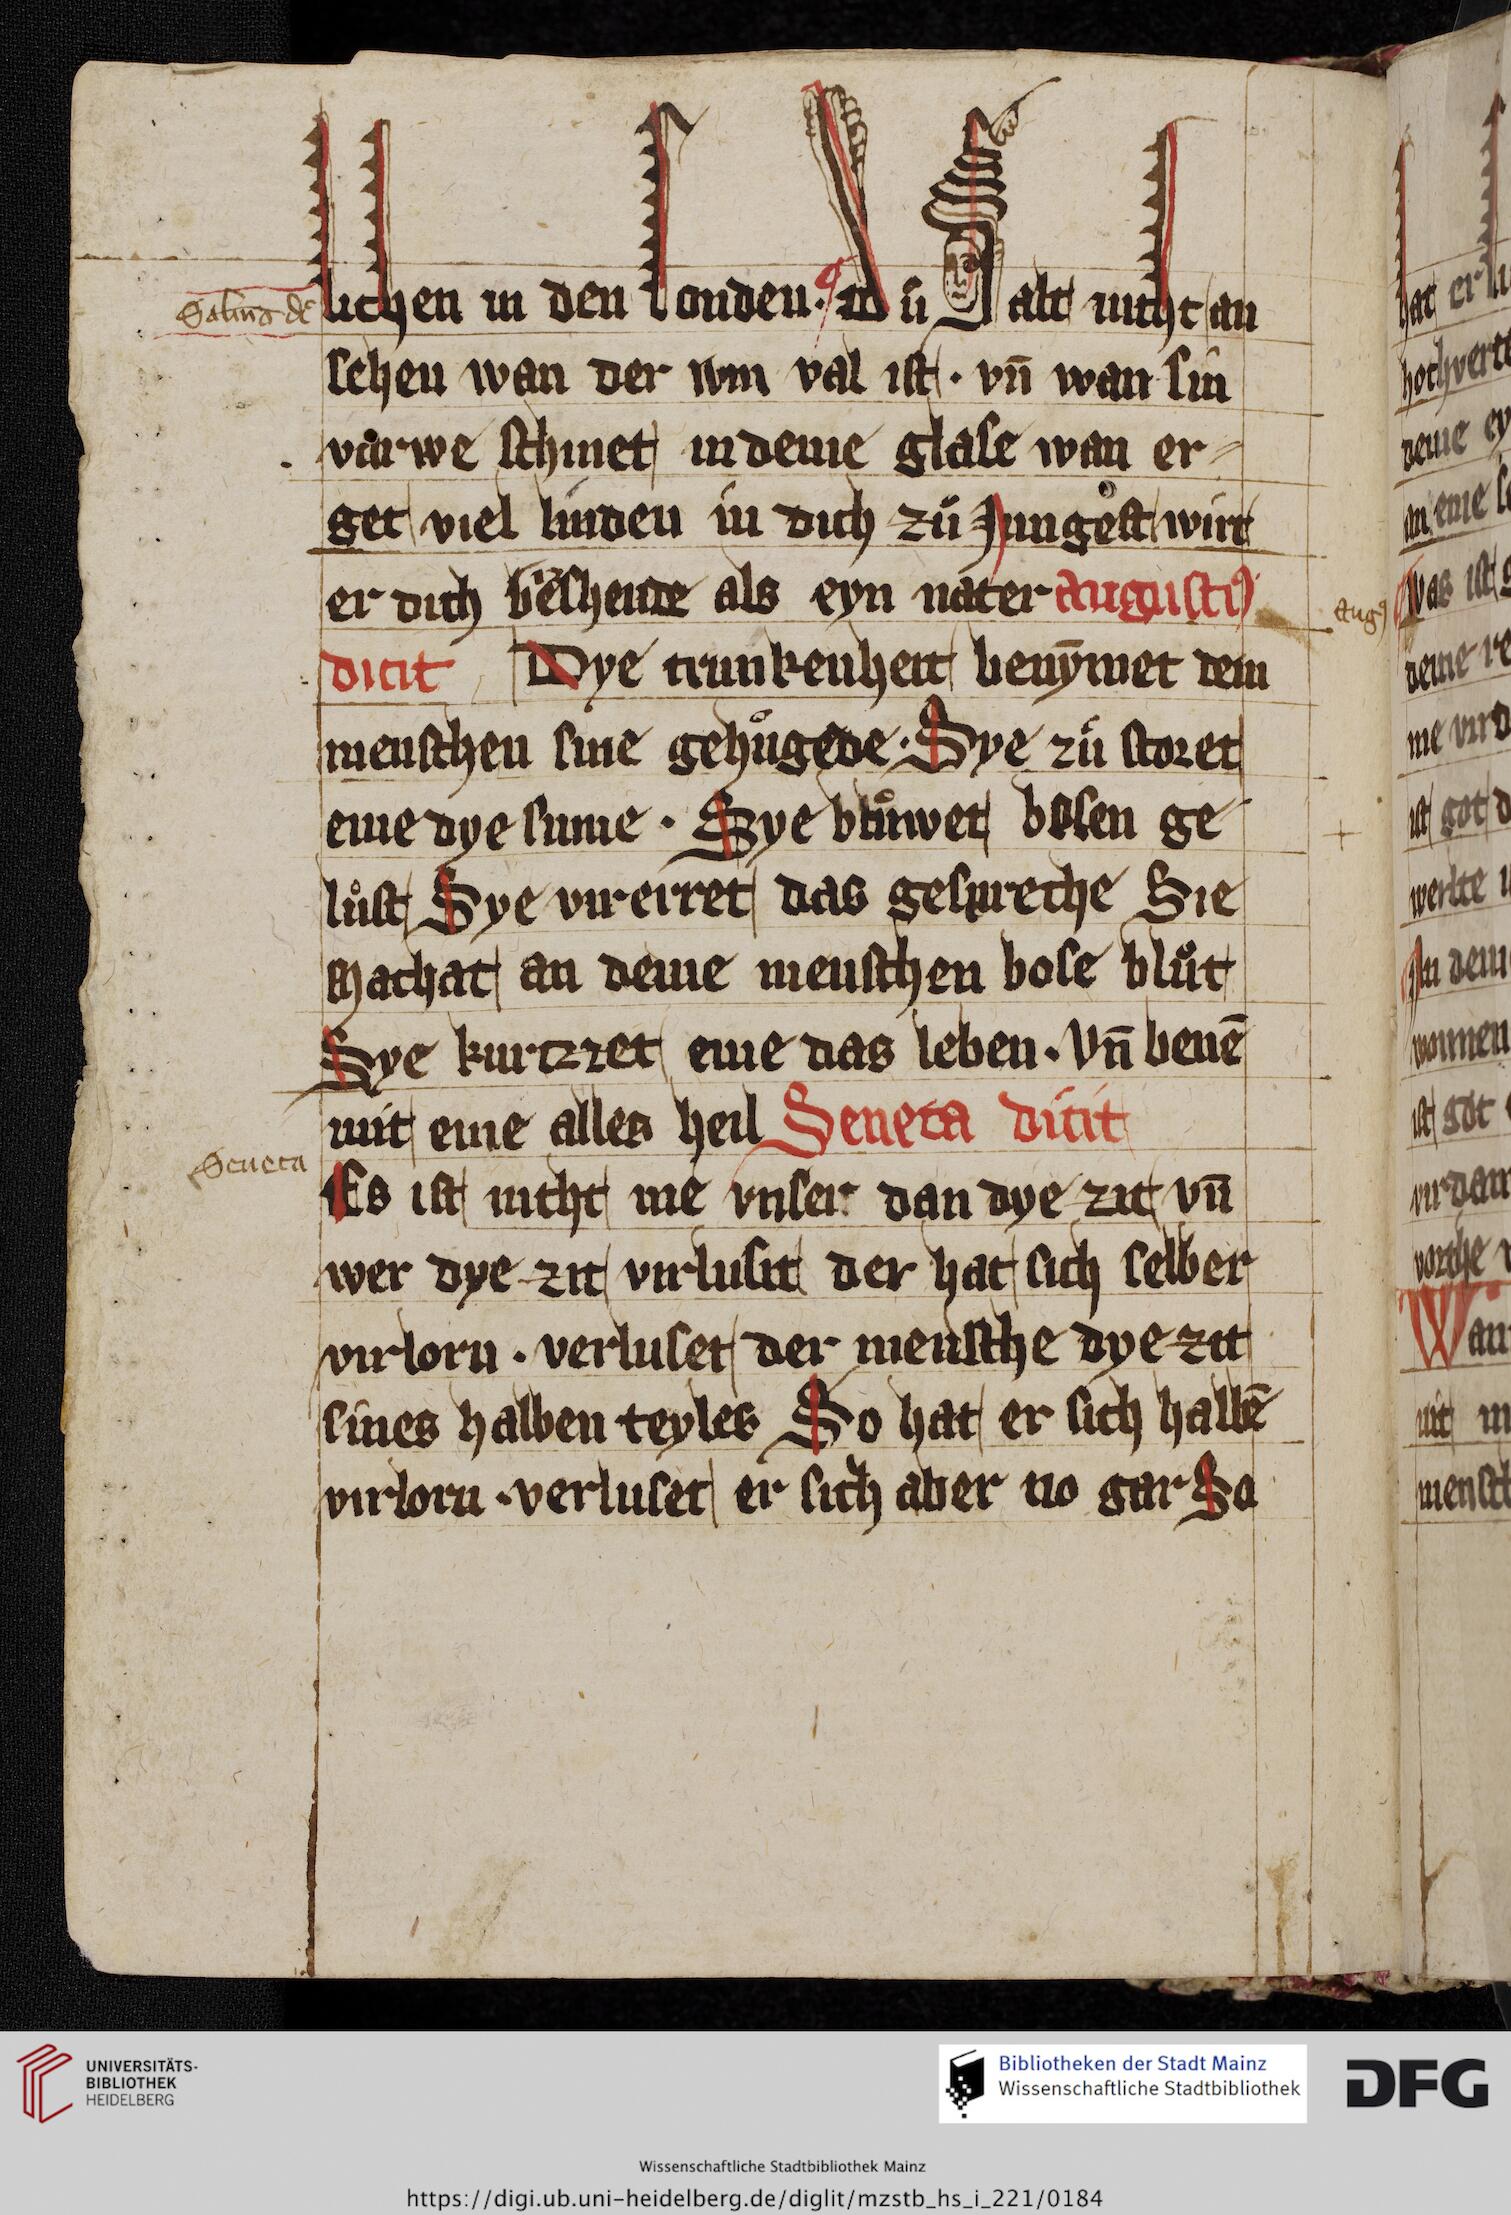 Salmg dc
lichen in den londen. Du salt nicht an
sehen wan der win val ist. vn̄ wan sin
vårwe schinet in deme glase wan er
get viel linden in dich zů Jungest wirt
er dich beschende als eyn nater Augustꝰ
Augꝰ
dicit Dye trunkenheit benȳmet dem
menschen sine gehůgede. Sye zů storet
eme dye sinne. Sye blůwet bosen ge
lůst Sye virerret das gespreche Sie
Machat an deme menschen bose blůt
Sye kurtzzet eme das leben. Vn̄ benē
mit eme alles heil Seneca dicit
Seneca
Es ist nicht me vnser dan dye zit vn̄
wer dye zit virlusit der hat sich selber
virlorn. verluset der mensche dye zit
sines halben teyles So hat er sich halbē
virlorn. verluset er sich aber no gar So
UNIVERSITÄTS-
BIBLIOTHEK
HEIDELBERG
Bibliotheken der Stadt Mainz
Wissenschaftliche Stadtbibliothek
DFG
Wissenschaftliche Stadtbibliothek Mainz
https://digi.ub.uni-heidelberg.de/diglit/mzstb_hs_i_221/0184